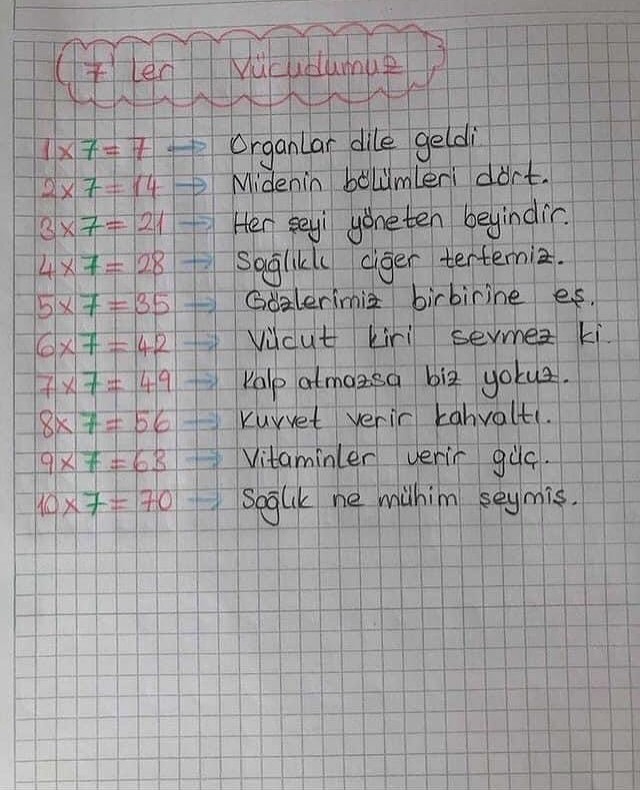 7 ler Vücudumuz
1x7=7 → Organlar dile geldi
2x7=14 → Midenin bölümleri dört.
3x7=21 → Her şeyi yöneten beyindir.
4x7=28 → Sağlıklı ciğer tertemiz.
5x7=35 → Gözlerimiz birbirine eş.
6x7=42 → Vücut kiri sevmez ki.
7x7=49 → Kalp atmazsa biz yokuz.
8x7=56 → Kuvvet verir kahvaltı.
9x7=63 → Vitaminler verir güç.
10x7=70 → Sağlık ne mühim şeymiş.